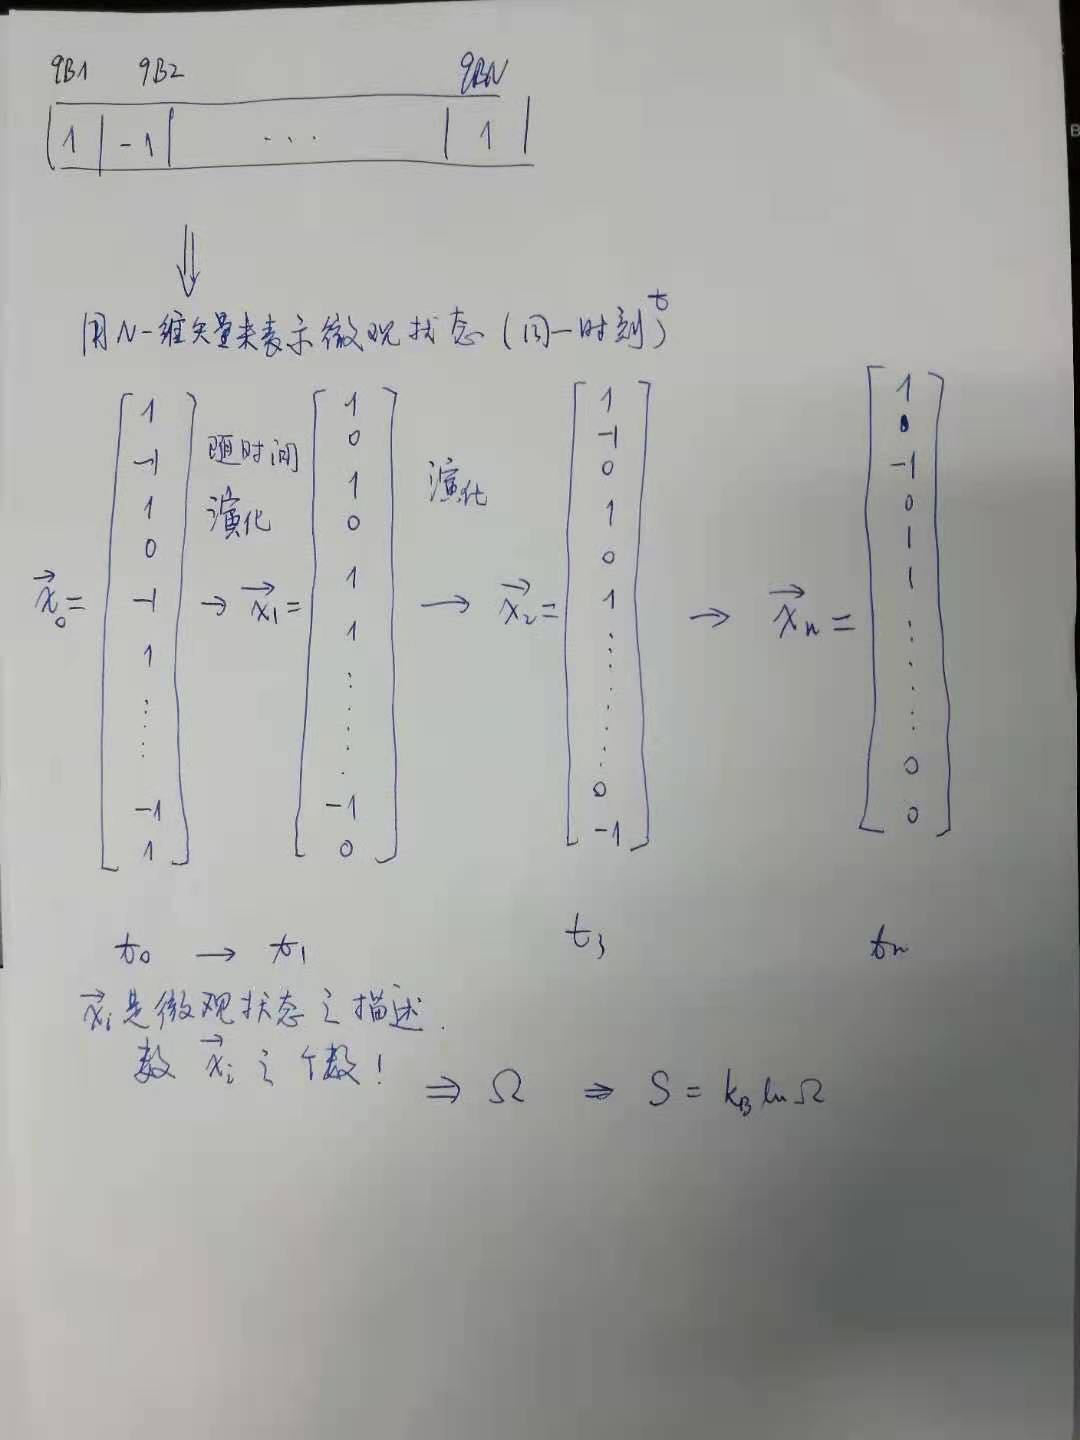 qB1 qB2 qBN
1 -1 ... 1
⇓
用N-维矢量来表示微观状态(同一时刻t)
x⃗₀= [1 -1 1 0 -1 1 ⋮ -1 1] 随时间演化 → x⃗₁= [1 0 1 0 1 1 ⋮ -1 0] 演化 → x⃗₂= [1 -1 0 1 0 1 ⋮ 0 -1] → x⃗n= [1 0 -1 0 1 1 ⋮ 0 0]
t₀ → t₁ t₃ tn
x⃗i是微观状态之描述.
数 x⃗i 之个数! ⇒ Ω ⇒ S = kB ln Ω